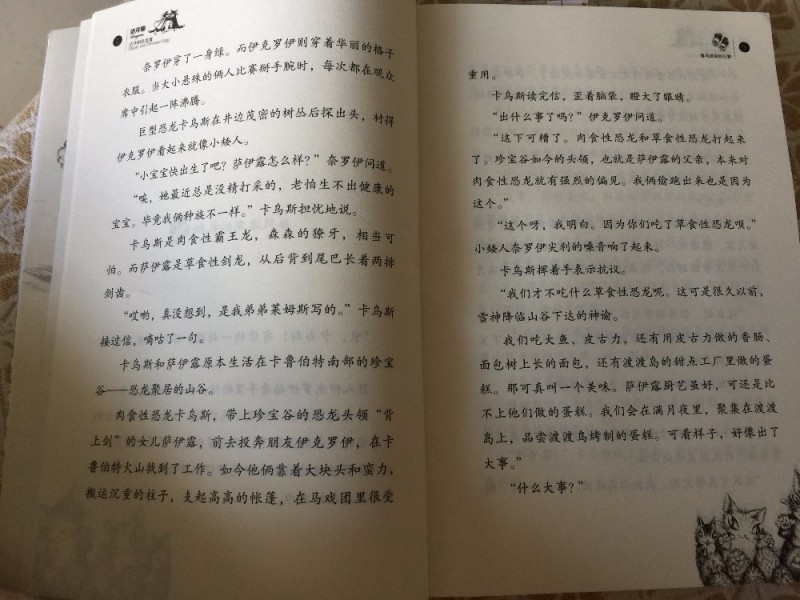 达洋猫
奈罗伊穿了一身绿。而伊克罗伊则穿着华丽的格子
衣服。当大小悬殊的俩人比赛掰手腕时，每次都在观众
席中引起一阵沸腾。
巨型恐龙卡乌斯在井边茂密的树丛后探出头，衬得
伊克罗伊看起来就像小矮人。
“小宝宝快出生了吧？萨伊露怎么样？”奈罗伊问道。
“唉，她最近总是没精打采的，老怕生不出健康的
宝宝。毕竟我俩种族不一样。”卡乌斯担忧地说。
卡乌斯是肉食性霸王龙，森森的獠牙，相当可
怕。而萨伊露是草食性剑龙，从后背到尾巴长着两排
剑齿。
“哎哟，真没想到，是我弟弟莱姆斯写的。”卡乌斯
接过信，嘀咕了一句。
卡乌斯和萨伊露原本生活在卡鲁伯特南部的珍宝
谷——恐龙聚居的山谷。
肉食性恐龙卡乌斯，带上珍宝谷的恐龙头领“背
上剑”的女儿萨伊露，前去投奔朋友伊克罗伊，在卡
鲁伯特火山找到了工作。如今他俩靠着大块头和蛮力，
搬运沉重的柱子，支起高高的帐篷，在马戏团里很受
重用。
卡乌斯读完信，歪着脑袋，瞪大了眼睛。
“出什么事了吗？”伊克罗伊问道。
“这下可糟了。肉食性恐龙和草食性恐龙打起来
了。珍宝谷如今的头领，也就是萨伊露的父亲，本来对
肉食性恐龙就有强烈的偏见。我俩偷跑出来也是因为
这个。”
“这个呀，我明白。因为你们吃了草食性恐龙呗。”
小矮人奈罗伊尖利的嗓音响了起来。
卡乌斯挥着手表示抗议。
“我们才不吃什么草食性恐龙呢。这可是很久以前，
雪神降临山谷下达的神谕。
我们吃大鱼、皮古力，还有用皮古力做的香肠、
面包树上长的面包，还有渡渡岛的甜点工厂里做的蛋
糕。那可真叫一个美味。萨伊露厨艺虽好，可还是比
不上他们做的蛋糕。我们会在满月夜里，聚集在渡渡
岛上，品尝渡渡鸟烤制的蛋糕。可看样子，好像出了
大事。”
“什么大事？”